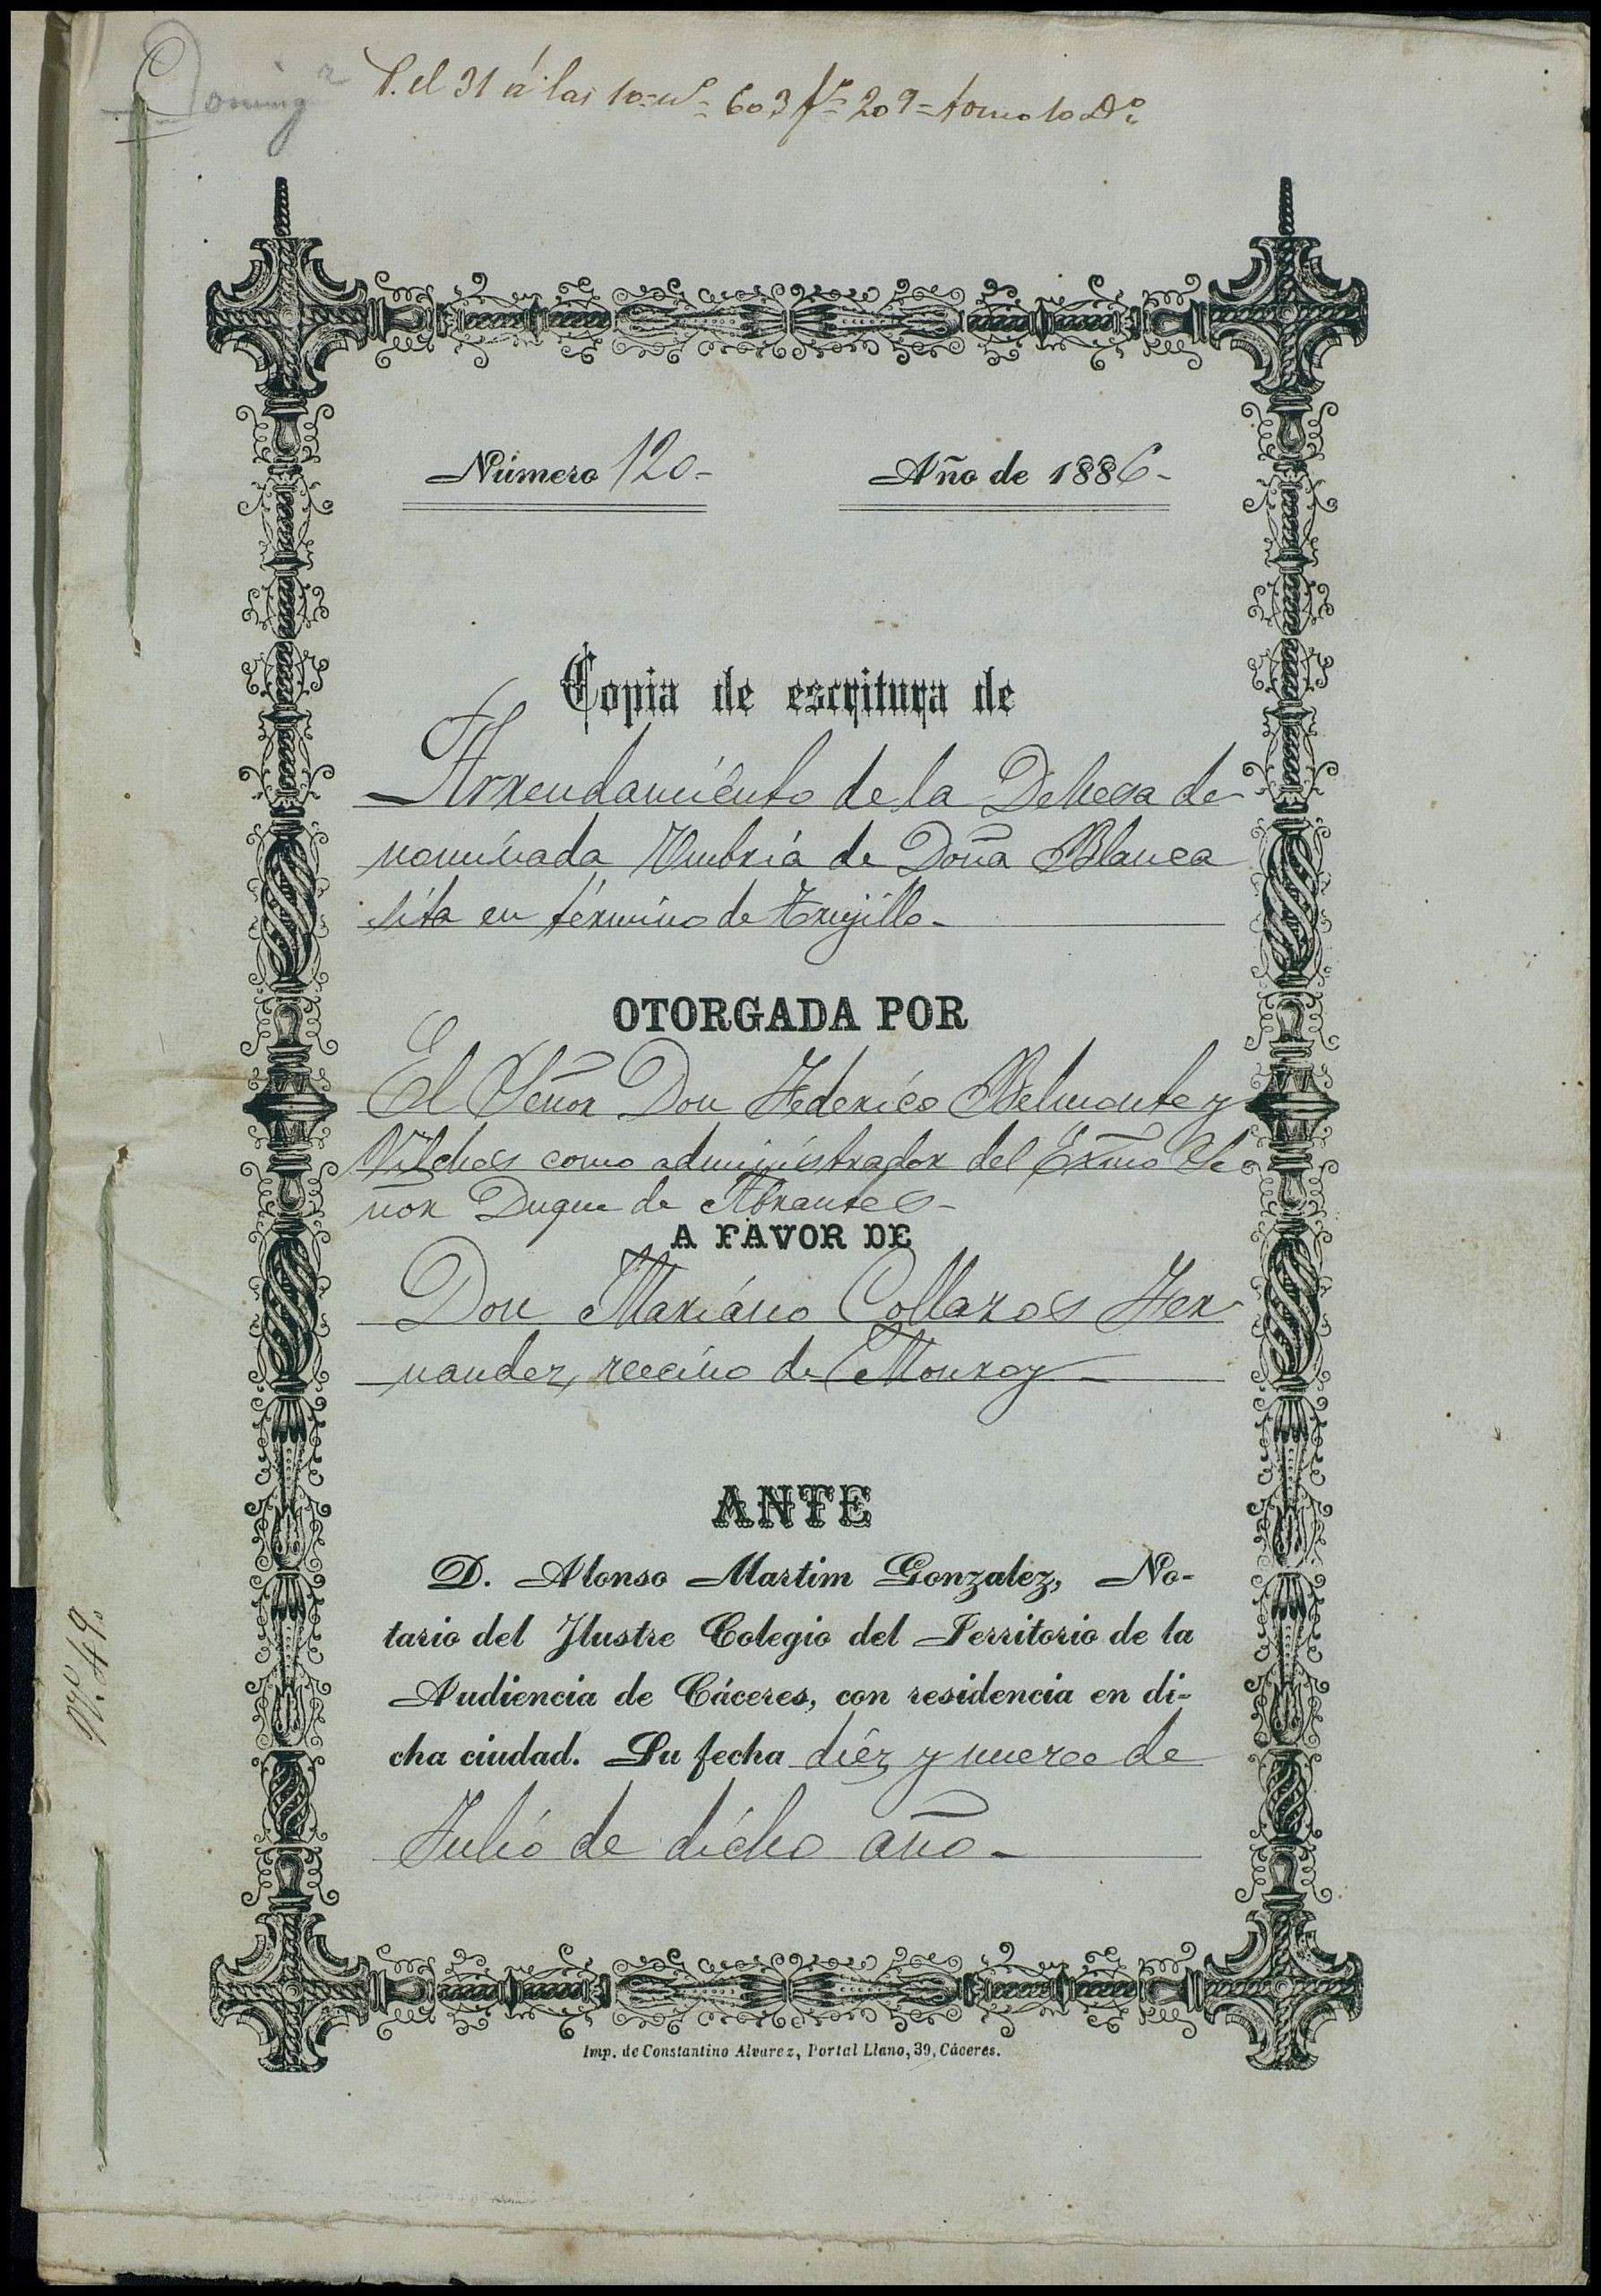 P. el 31 á las 10=nº=603 fº=209=tomo 10 Dº
Número 120-
Año de 1886-
Copia de escritura de
Arrendamiento de la Dehesa de
nominada Umbría de Doña Blanca
sita en término de Trujillo-
OTORGADA POR
El Señor Don Federico Belmonte y
Vilches como administrador del Exmo Se
ñor Duque de Abrantes-
A FAVOR DE
Don Mariano Collazos Her
nandez, vecino de Monroy-
ANTE
D. Alonso Martim Gonzalez, No-
tario del Ilustre Colegio del Territorio de la
Audiencia de Cáceres, con residencia en di-
cha ciudad. Su fecha diez y nueve de
Julio de dicho año-
Imp. de Constantino Alvarez, Portal Llano, 39, Cáceres.
Nº 49.